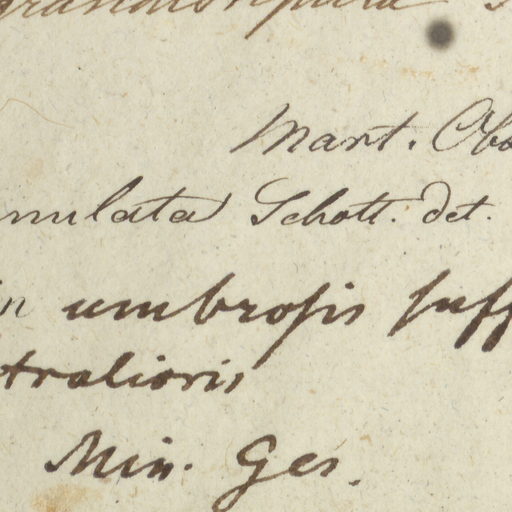 Mart. Ob
mulata Schott. det.
in umbrosis suff
tralioris
Min. Ges.